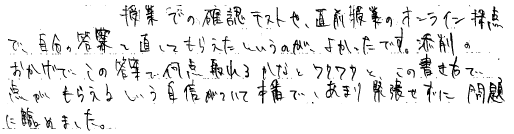 授業での確認テストや、直前授業のオンライン採点
で、自分の答案を直してもらえたというのが、よかったです。添削の
おかげで、この答案で何点取れるかなとワクワクと、この書き方で
点がもらえるという自信がついて本番で、あまり緊張せずに問題
に臨めました。